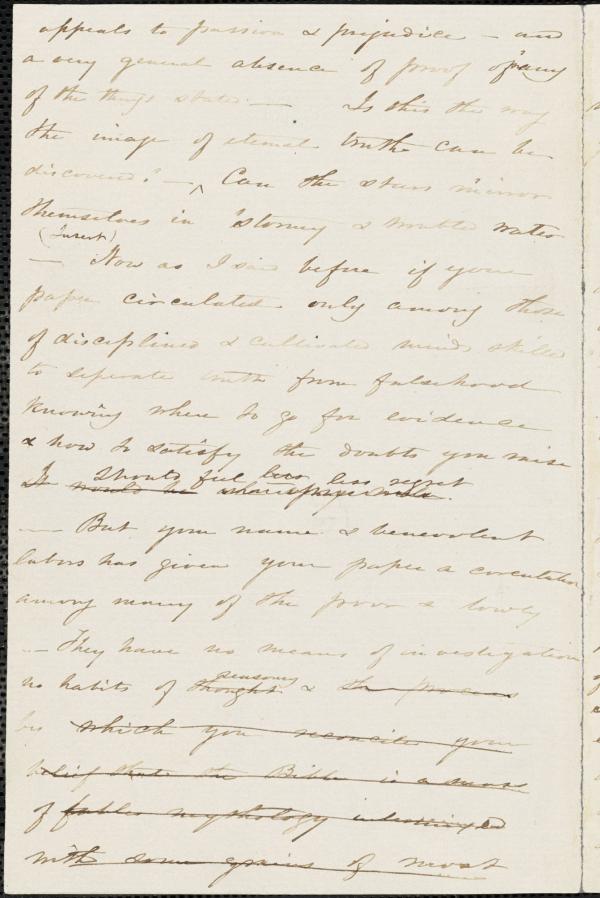 appeals to passion & prejudice – and
a very general absence of proof of any
of the things stated. — Is this the way
the image of eternal truth can be
discovered? – ^ Can the stars mirror
themselves in stormy & troubled water
(Insert)
— Now as I said before if your
paper circulated only among those
of disciplined & cultivated minds skilled
to seperate truth from falsehood
knowing where to go for evidence
& how to satisfy the doubts you raise
I should feel less regret
It would be
— But your name & benevolent
labors has given your paper a circulation
among many of the poor & lowly
— They have no means of investigation
no habits of reasoning
thought & the process
by which you reconcile your
belief that the Bible is a mass
of fables mythology intermixed
with some grains of most